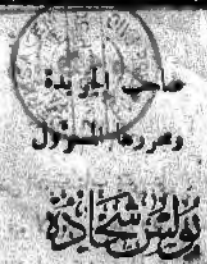 صاحب الجريدة
ومحررها المسؤول
بولس شحادة